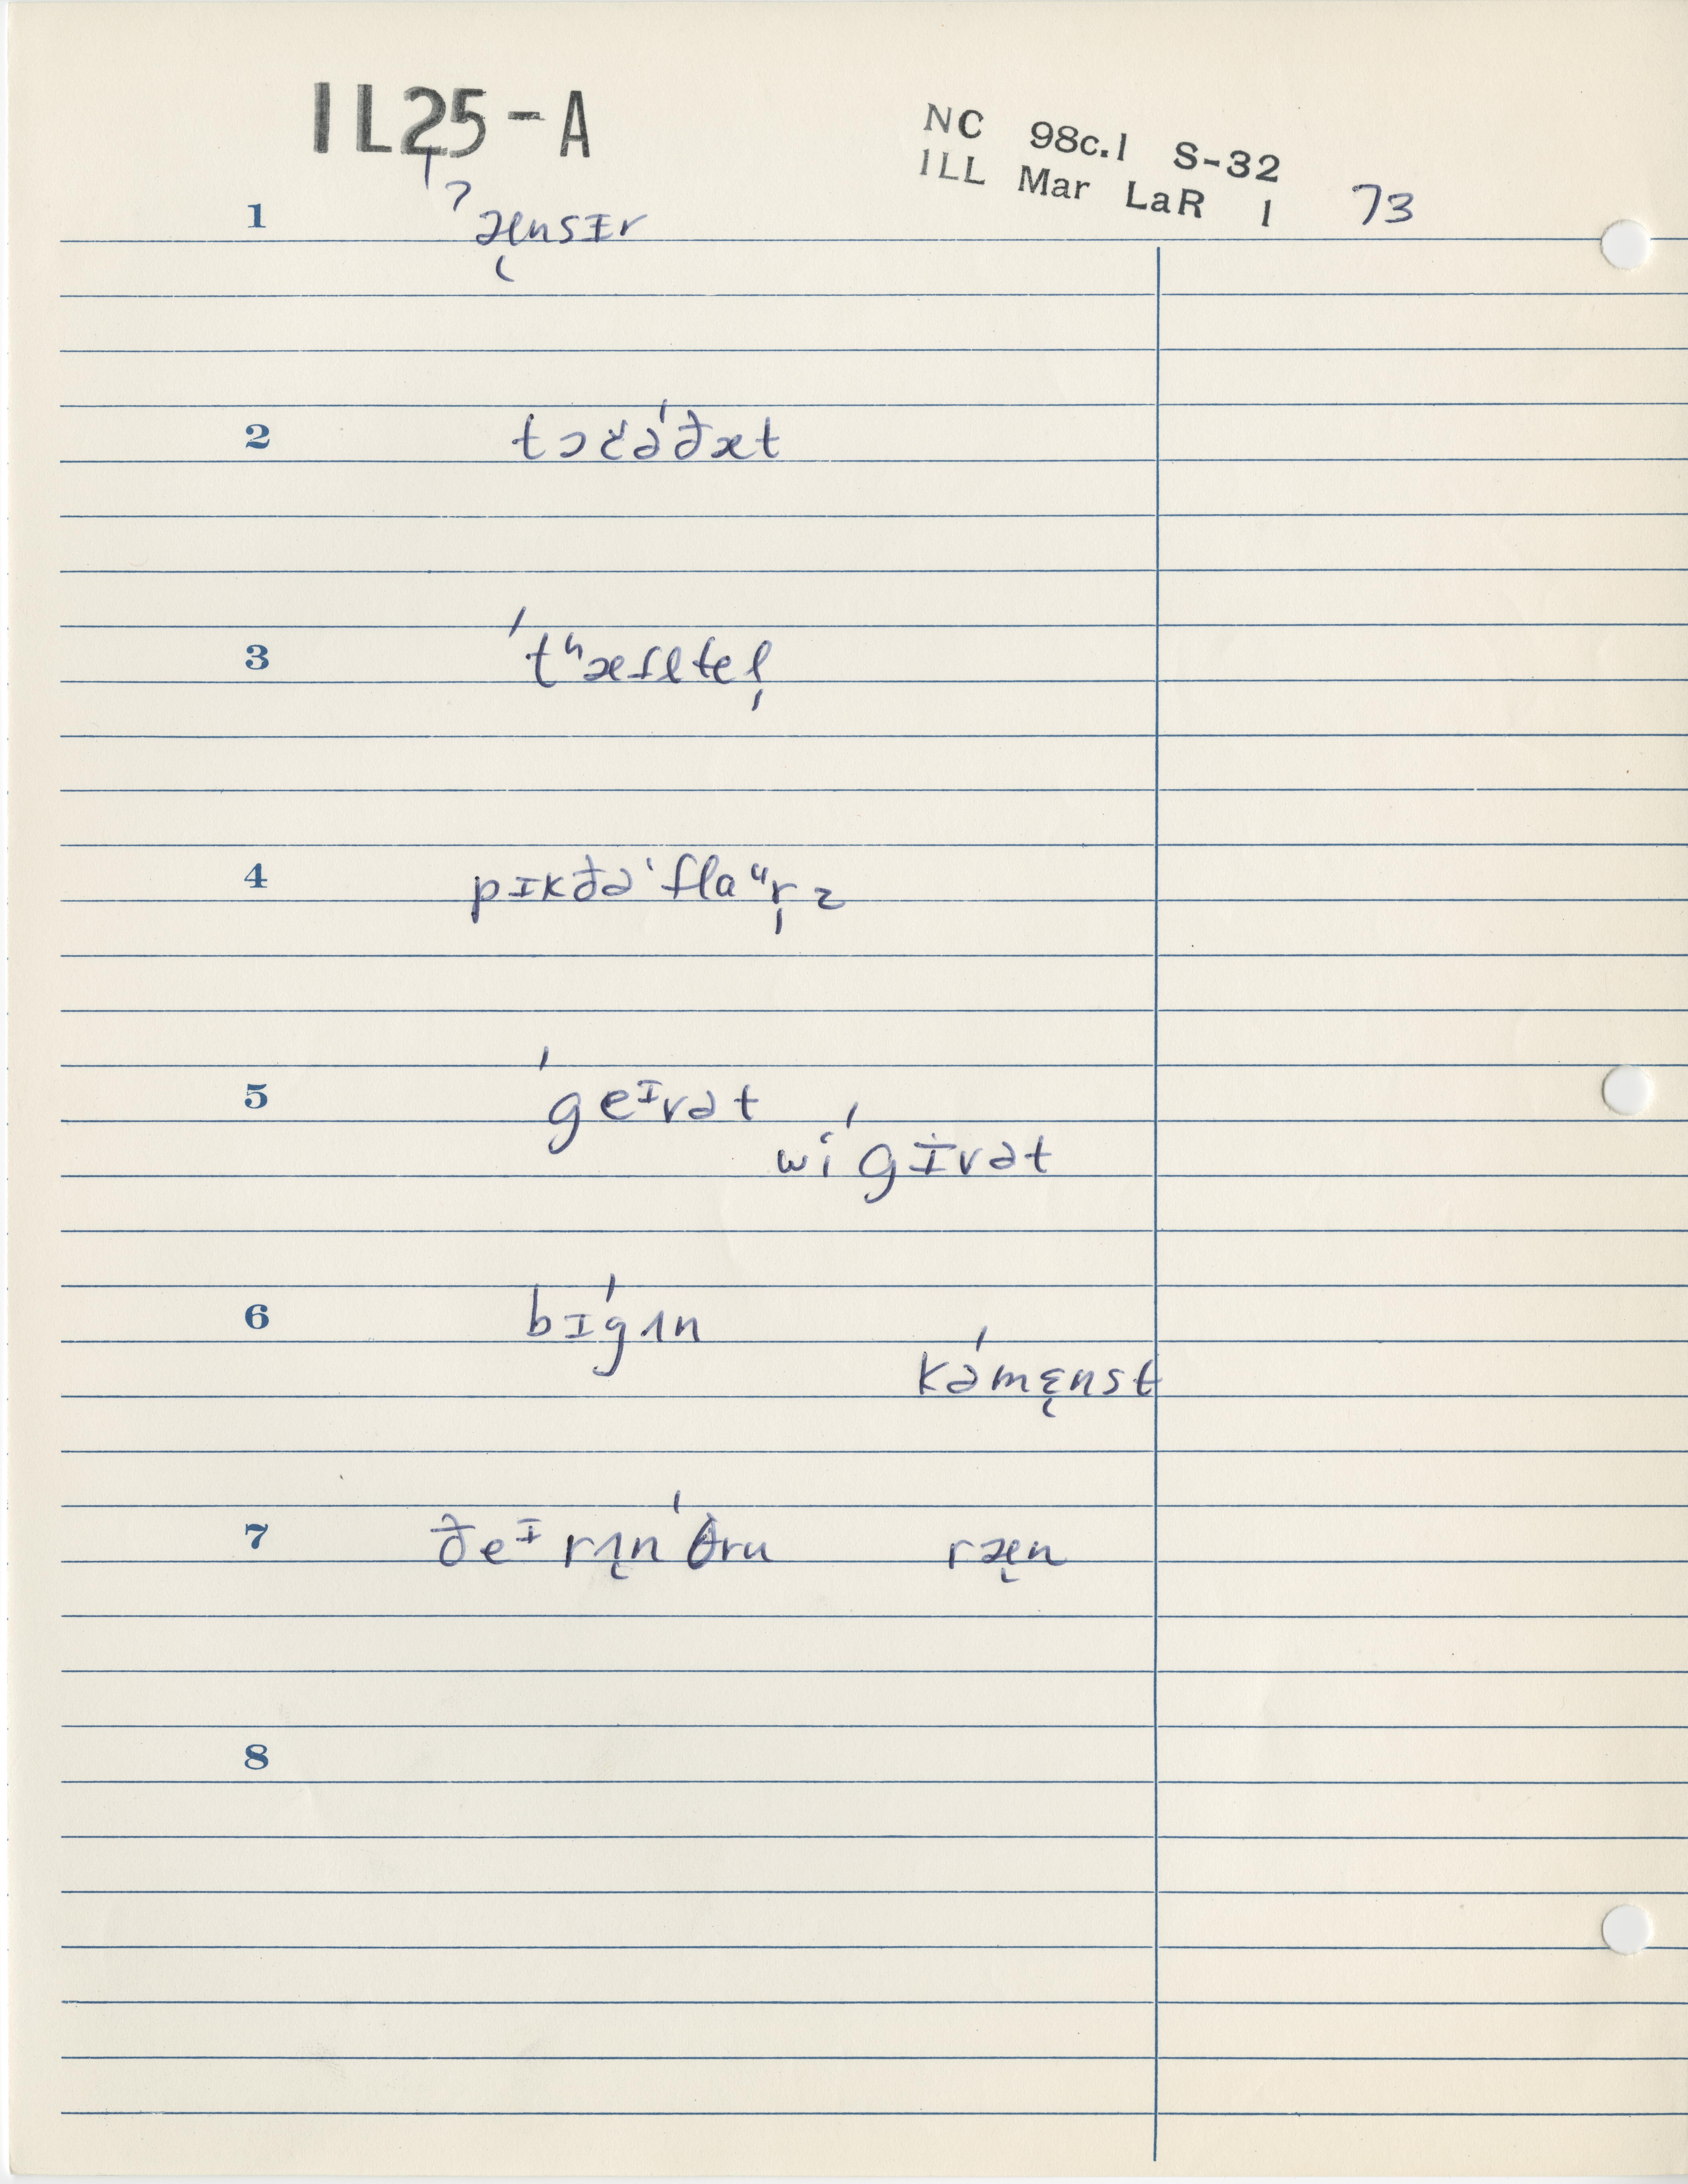 IL25-A
NC 98c.1 S-32
ILL Mar LaR 1 73
1 ˈʔæ̨nsɪr
2 tɔčəˈðæt
3 ˈtʰæɪltel̩
4 pɪkðəˈflaᵘr̩z
5 ˈgeᶦvət
wiˈgɪvət
6 bɪˈgɪn
kəˈmɛ̨nst
7 ðeᶦ rʌ̨nˈθru ræ̨n
8